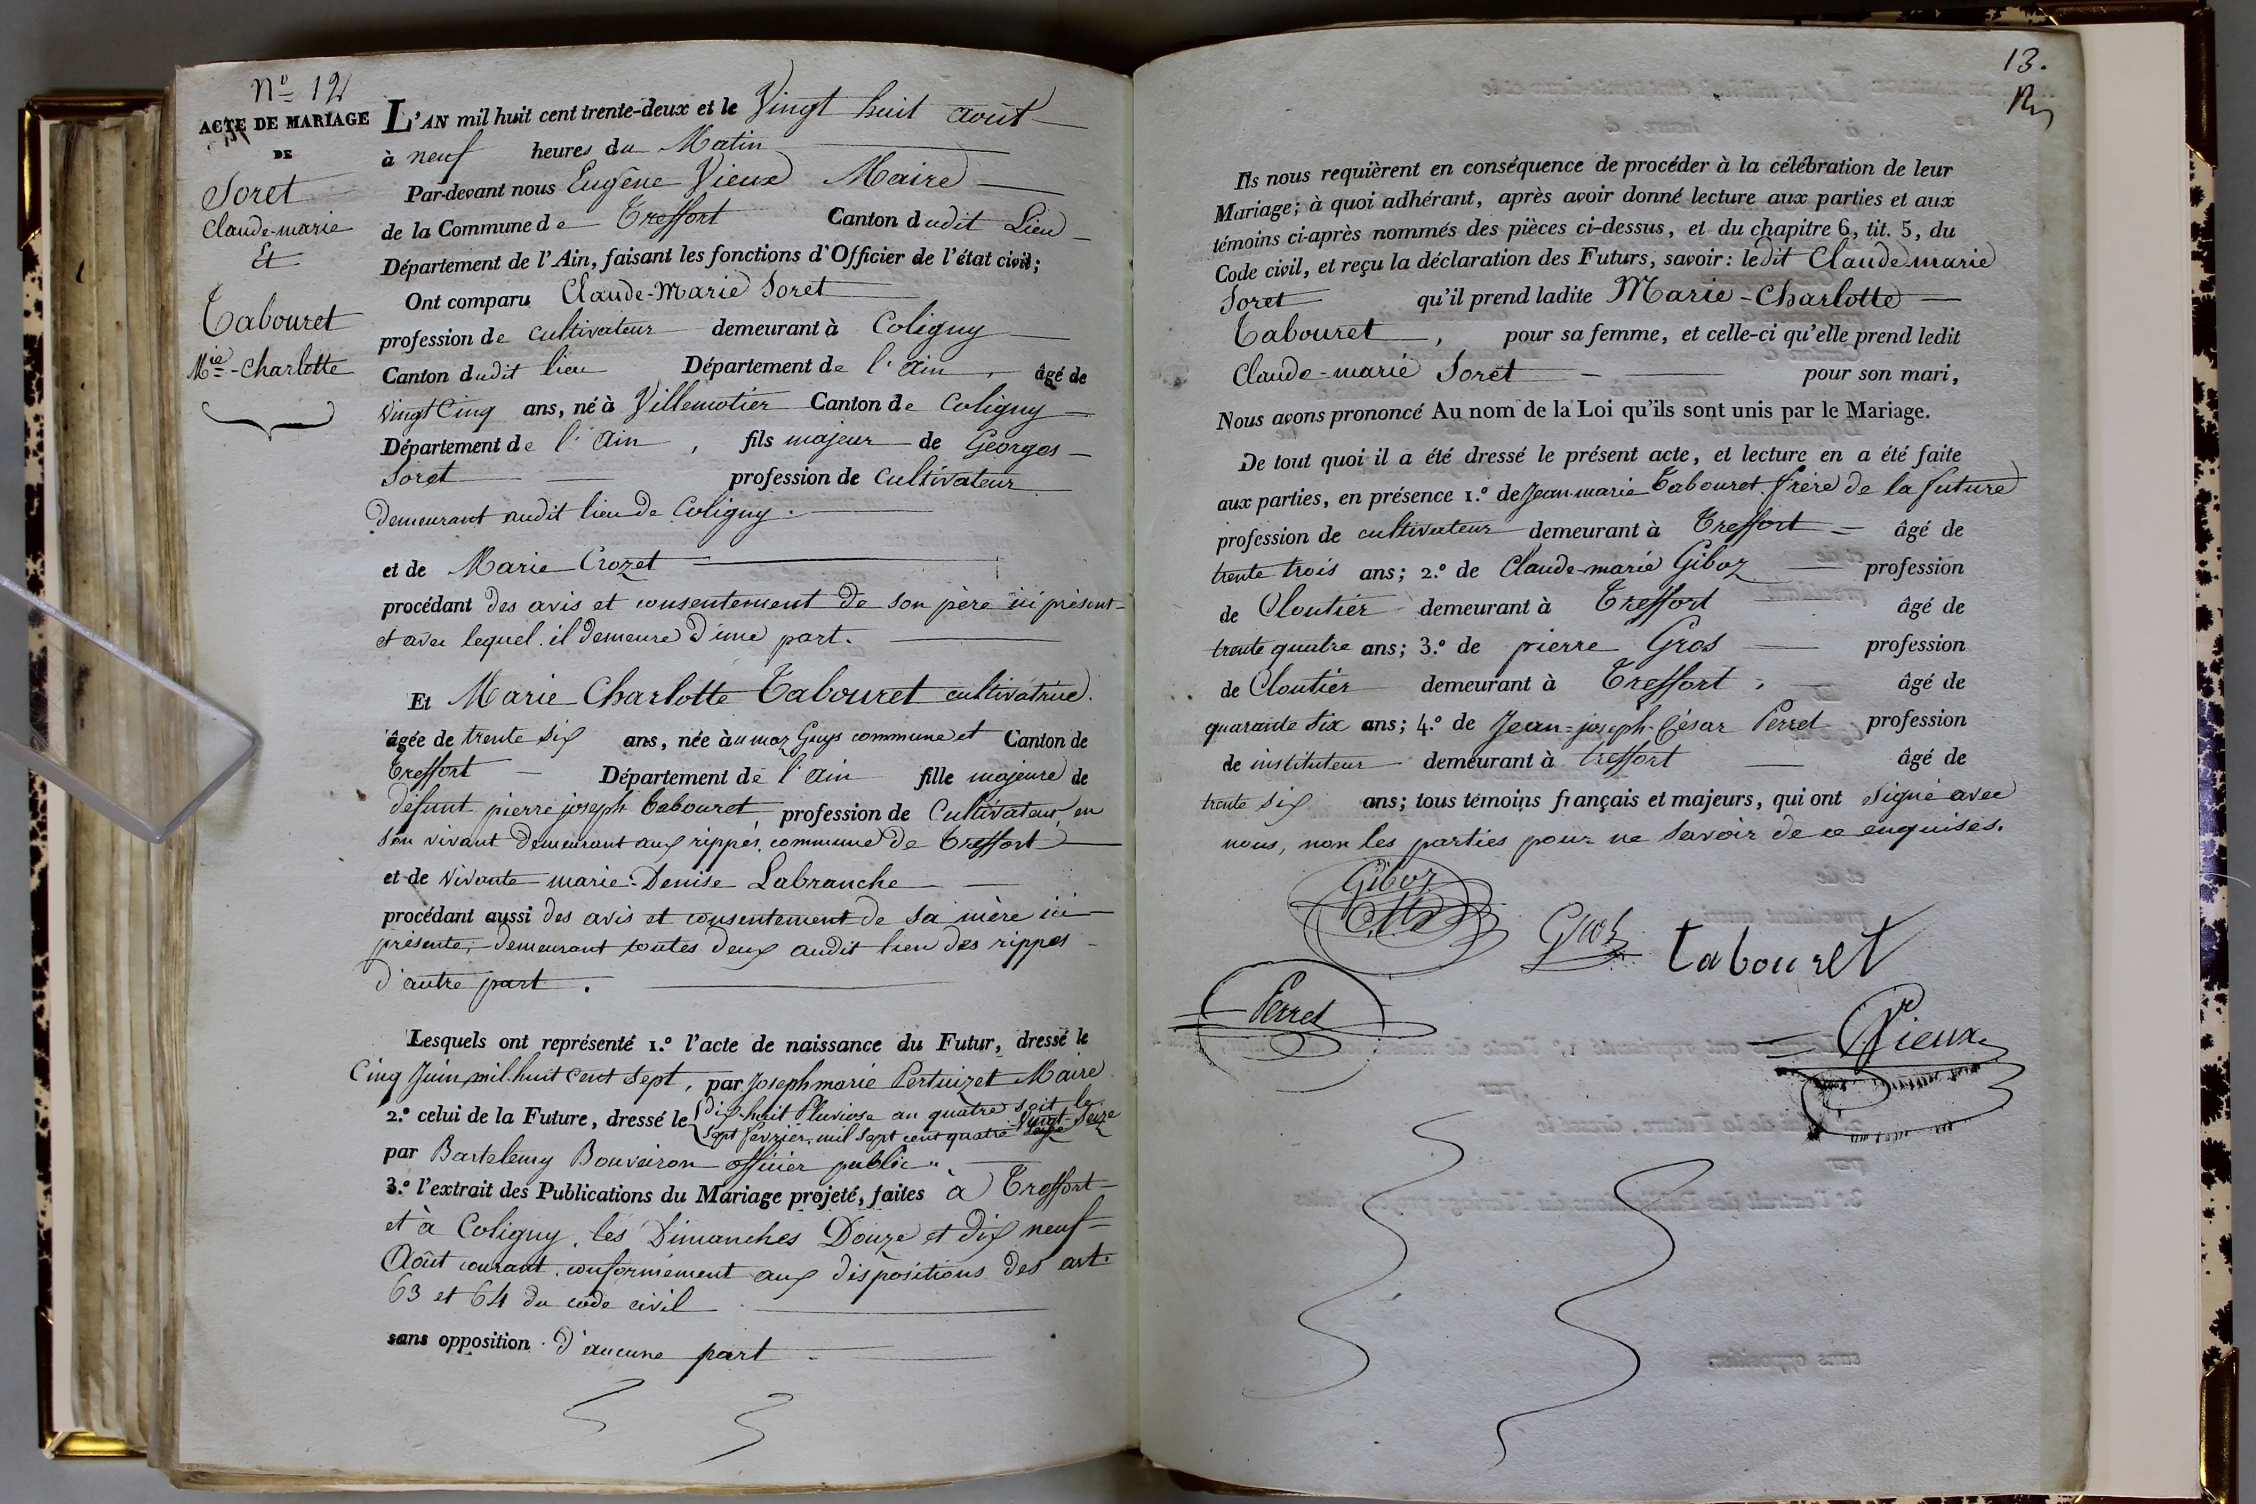 N.º 12
ACTE DE MARIAGE
DE
Soret
Claude-marie
Et
Tabouret
M.ie-Charlotte
L'AN mil huit cent trente-deux et le Vingt huit août
à neuf heures du Matin
Par-devant nous Eugêne Vieux Maire
de la Commune de Treffort Canton dudit Lieu
Département de l'Ain, faisant les fonctions d'Officier de l'état civil;
Ont comparu Claude-Marie Soret
profession de cultivateur demeurant à Coligny
Canton dudit lieu Département de l'ain, âgé de
Vingt Cinq ans, né à Villemotier Canton de Coligny
Département de l'ain, fils majeur de Georges
Soret profession de Cultivateur
demeurant audit lieu de Coligny.
et de Marie Crozet
procédant des avis et consentement de son père ici présent
et avec lequel il demeure d'une part.
Et Marie Charlotte Tabouret cultivatrice.
âgée de trente Six ans, née au maz Guys commune et Canton de
Treffort Département de l'ain fille majeure de
défunt pierre joseph Tabouret profession de Cultivateur, en
son vivant demeurant aux rippes, commune de Treffort
et de vivante marie-Denise Labranche
procédant aussi des avis et consentement de sa mère ici
présente; demeurant toutes deux audit lieu des rippes
d'autre part.
Lesquels ont représenté 1.º l'acte de naissance du Futur, dressé le
Cinq Juin mil huit Cent Sept, par Joseph marie Pertuizet Maire
2.º celui de la Future, dressé le dix-huit Pluviose an quatre soit le
sept fevrier, mil sept cent quatre Vingt-Seize
par Bartelemy Bouveiron officier public.
3.º l'extrait des Publications du Mariage projeté, faites à Treffort
et à Coligny, les Dimanches Douze et dix neuf
Août courant, conformément aux dispositions des art.
63 et 64 du code civil
sans opposition d'aucune part.
13.
Ils nous requièrent en conséquence de procéder à la célébration de leur
Mariage; à quoi adhérant, après avoir donné lecture aux parties et aux
témoins ci-après nommés des pièces ci-dessus, et du chapitre 6, tit. 5, du
Code civil, et reçu la déclaration des Futurs, savoir: ledit Claude marie
Soret qu'il prend ladite Marie-Charlotte
Tabouret, pour sa femme, et celle-ci qu'elle prend ledit
Claude-marie Soret pour son mari,
Nous avons prononcé Au nom de la Loi qu'ils sont unis par le Mariage.
De tout quoi il a été dressé le présent acte, et lecture en a été faite
aux parties, en présence 1.º de Jean-marie Tabouret frère de la future
profession de cultivateur demeurant à Treffort âgé de
trente trois ans; 2.º de Claude-marie Giboz profession
de Cloutier demeurant à Treffort âgé de
trente quatre ans; 3.º de pierre Gros profession
de Cloutier demeurant à Treffort, âgé de
quarante six ans; 4.º de Jean-joseph-César Perret profession
de instituteur demeurant à treffort âgé de
trente six ans; tous témoins français et majeurs, qui ont signé avec
nous, non les parties pour ne savoir de ce enquises.
Giboz
Gros
tabouret
Perret
Vieux